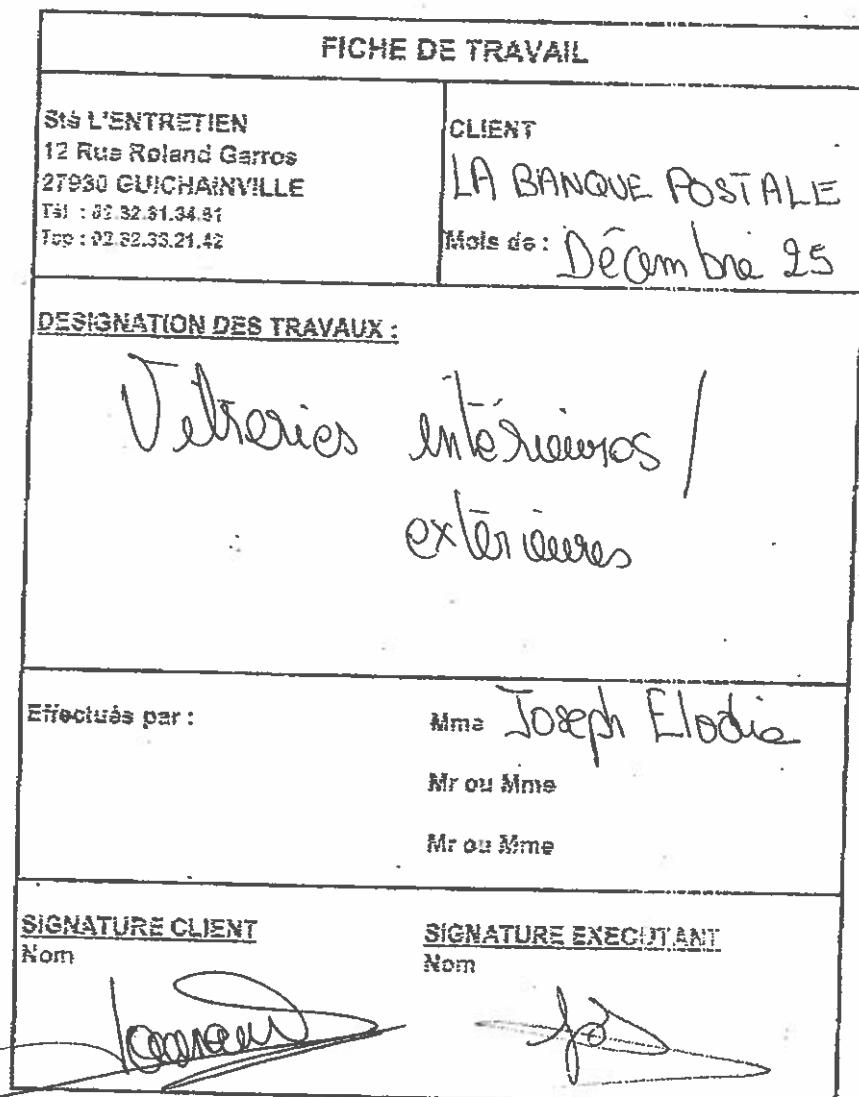 FICHE DE TRAVAIL
Sté L'ENTRETIEN
12 Rue Roland Garros
27930 GUICHAINVILLE
Tél : 02.32.31.34.81
Tcp : 02.32.33.21.42
CLIENT
LA BANQUE POSTALE
Mois de : Décembre 25
DESIGNATION DES TRAVAUX :
Vitreries intérieures /
extérieures
Effectués par :
Mme Joseph Elodie
Mr ou Mme
Mr ou Mme
SIGNATURE CLIENT
Nom
SIGNATURE EXECUTANT
Nom